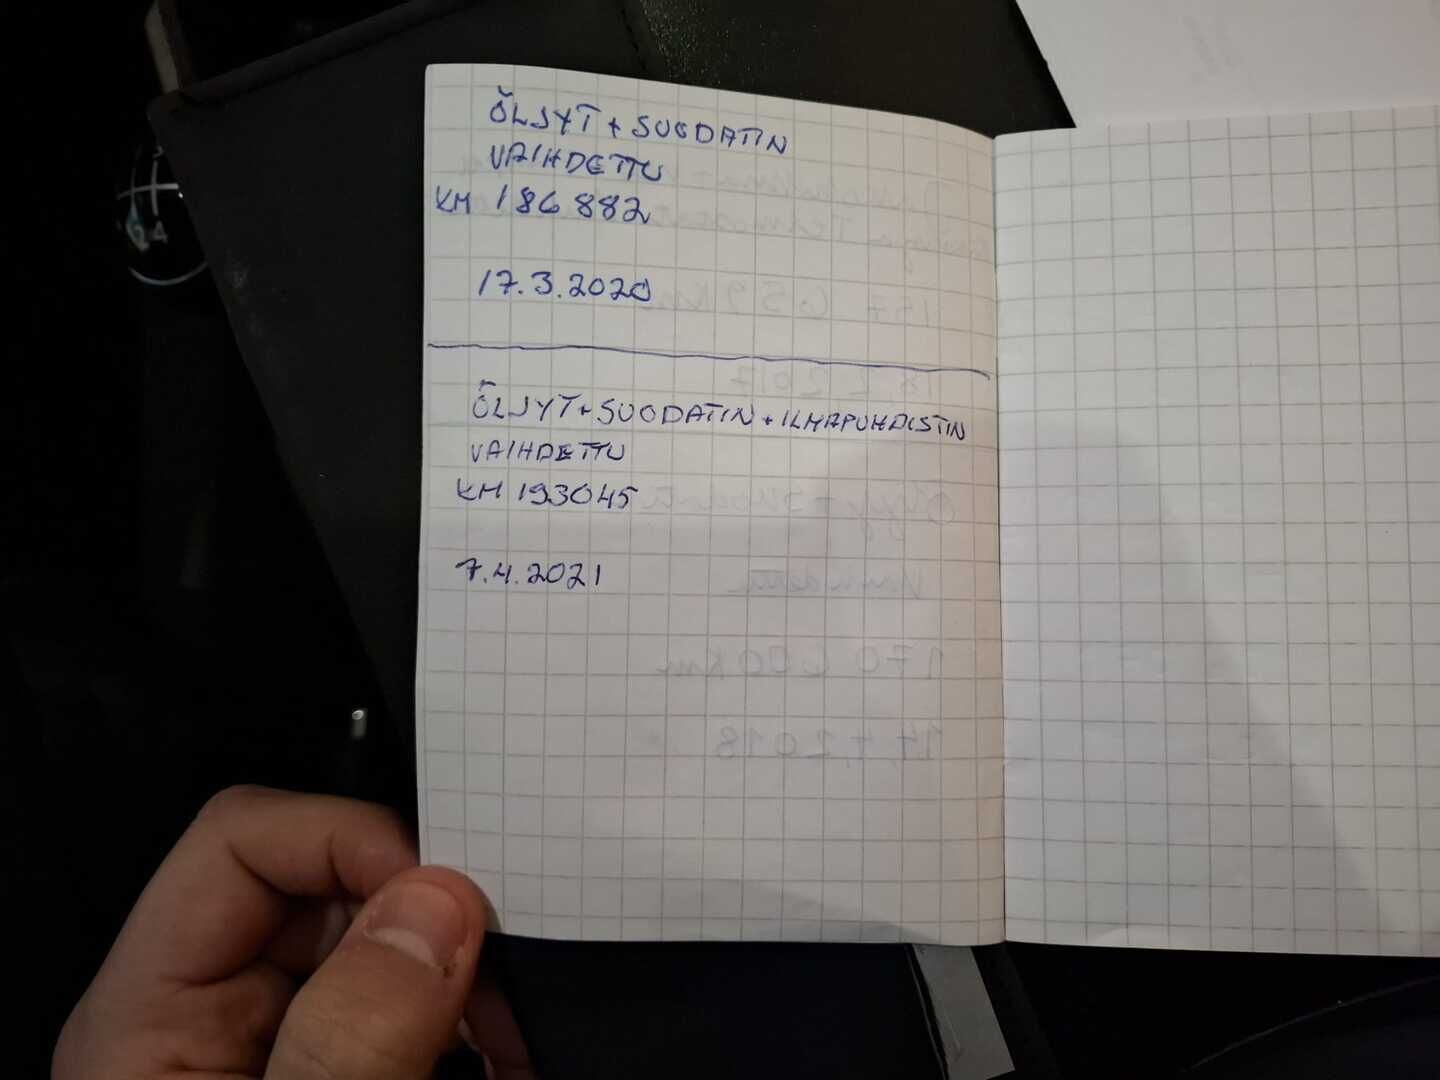 ÖLJYT + SUODATIN
VAIHDETTU
KM 186 882
17.3.2020
ÖLJYT + SUODATIN + ILMAPUHDISTIN
VAIHDETTU
KM 193045
7.4.2021